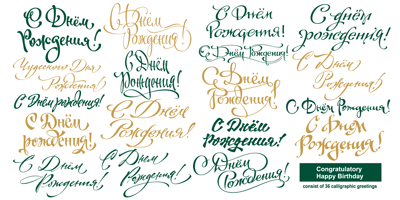 С Днём
Рождения!
Чудесного Дня
Рождения!
С Днём рождения!
С Днём
рождения!
С Днём
Рождения!
С Днём
Рождения!
С Днём
Рождения!
С Днём
Рождения!
С Днём
Рождения!
С Днём
Рождения!
С Днём Рождения!
С Днём
Рождения!
С Днём
Рождения!
С Днём
Рождения!
С днём
рождения!
С Днём
Рождения!
С Днём Рождения!
С Днём
Рождения!
Congratulatory
Happy Birthday
consist of 36 calligraphic greetings